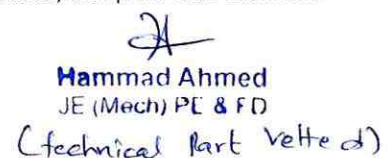 Hammad Ahmed
JE (Mech) PE & FD
(technical Part Vetted)